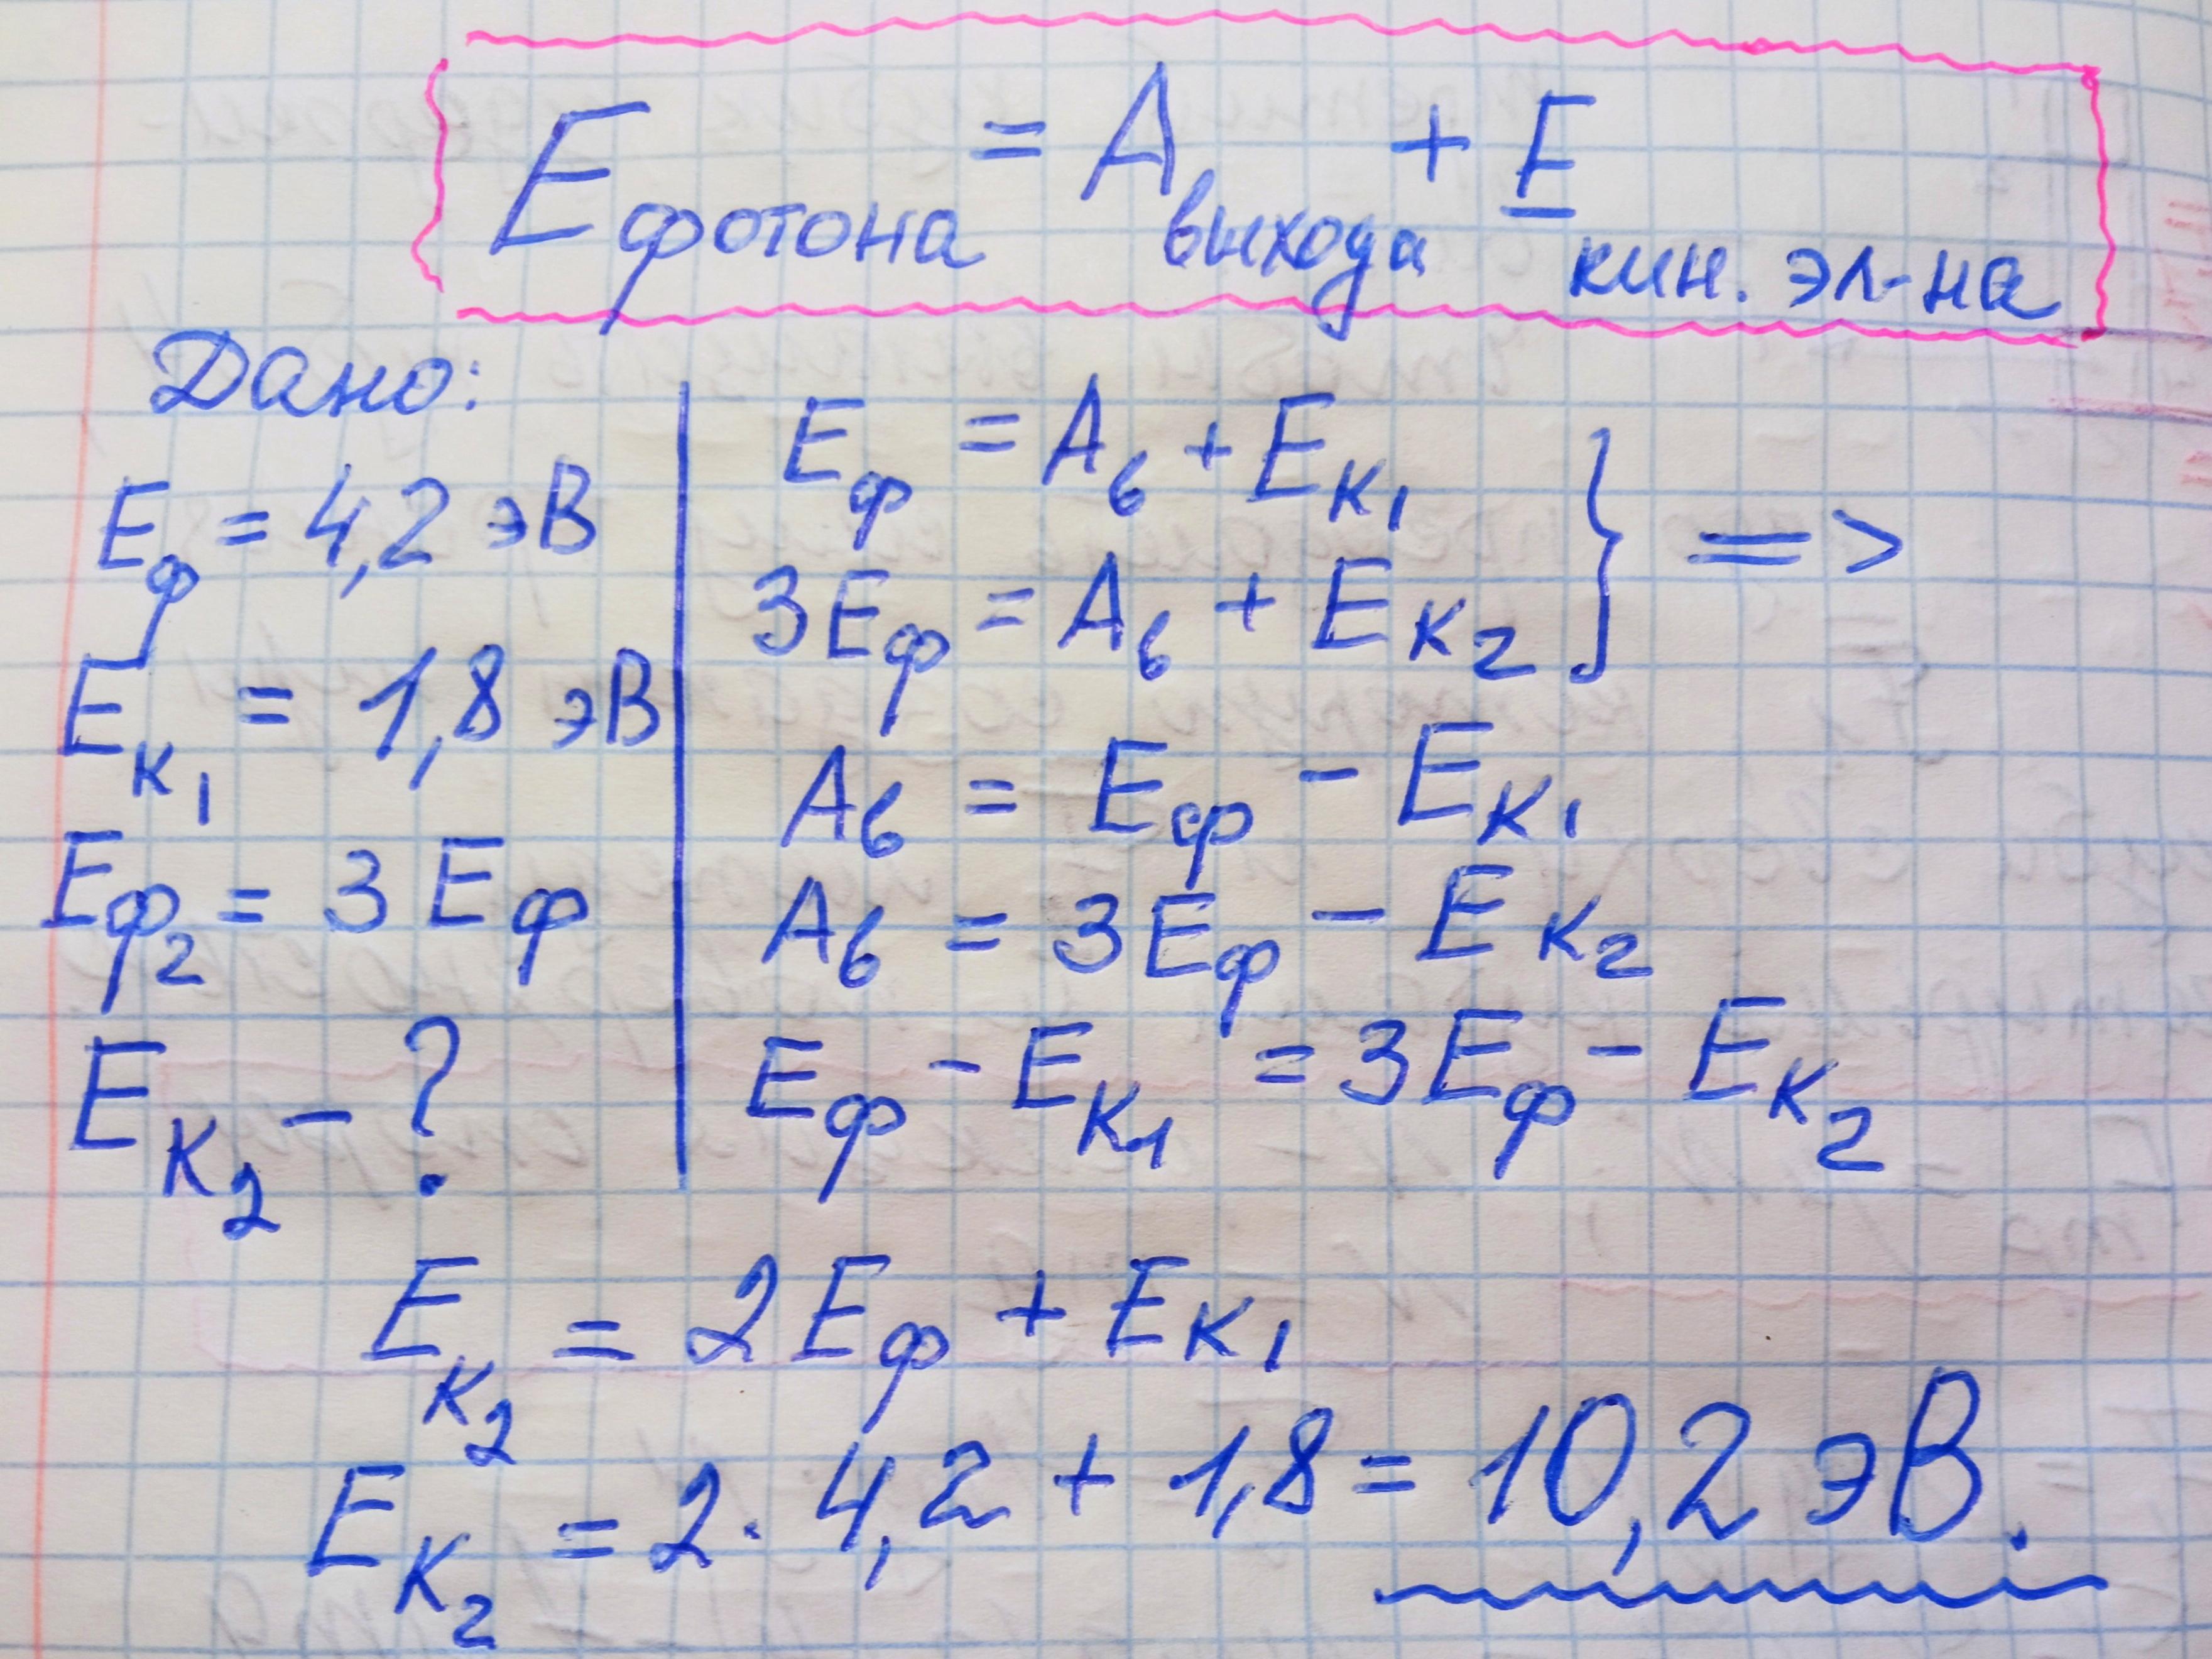 Eфотона = Aвыхода + E кин. эл-на
Дано:
Eф = 4,2 эВ
Eк1 = 1,8 эВ
Eф2 = 3Eф
Eк2 - ?
Eф = Aв + Eк1
3Eф = Aв + Eк2 } =>
Aв = Eф - Eк1
Aв = 3Eф - Eк2
Eф - Eк1 = 3Eф - Eк2
Eк2 = 2Eф + Eк1
Eк2 = 2 · 4,2 + 1,8 = 10,2 эВ.